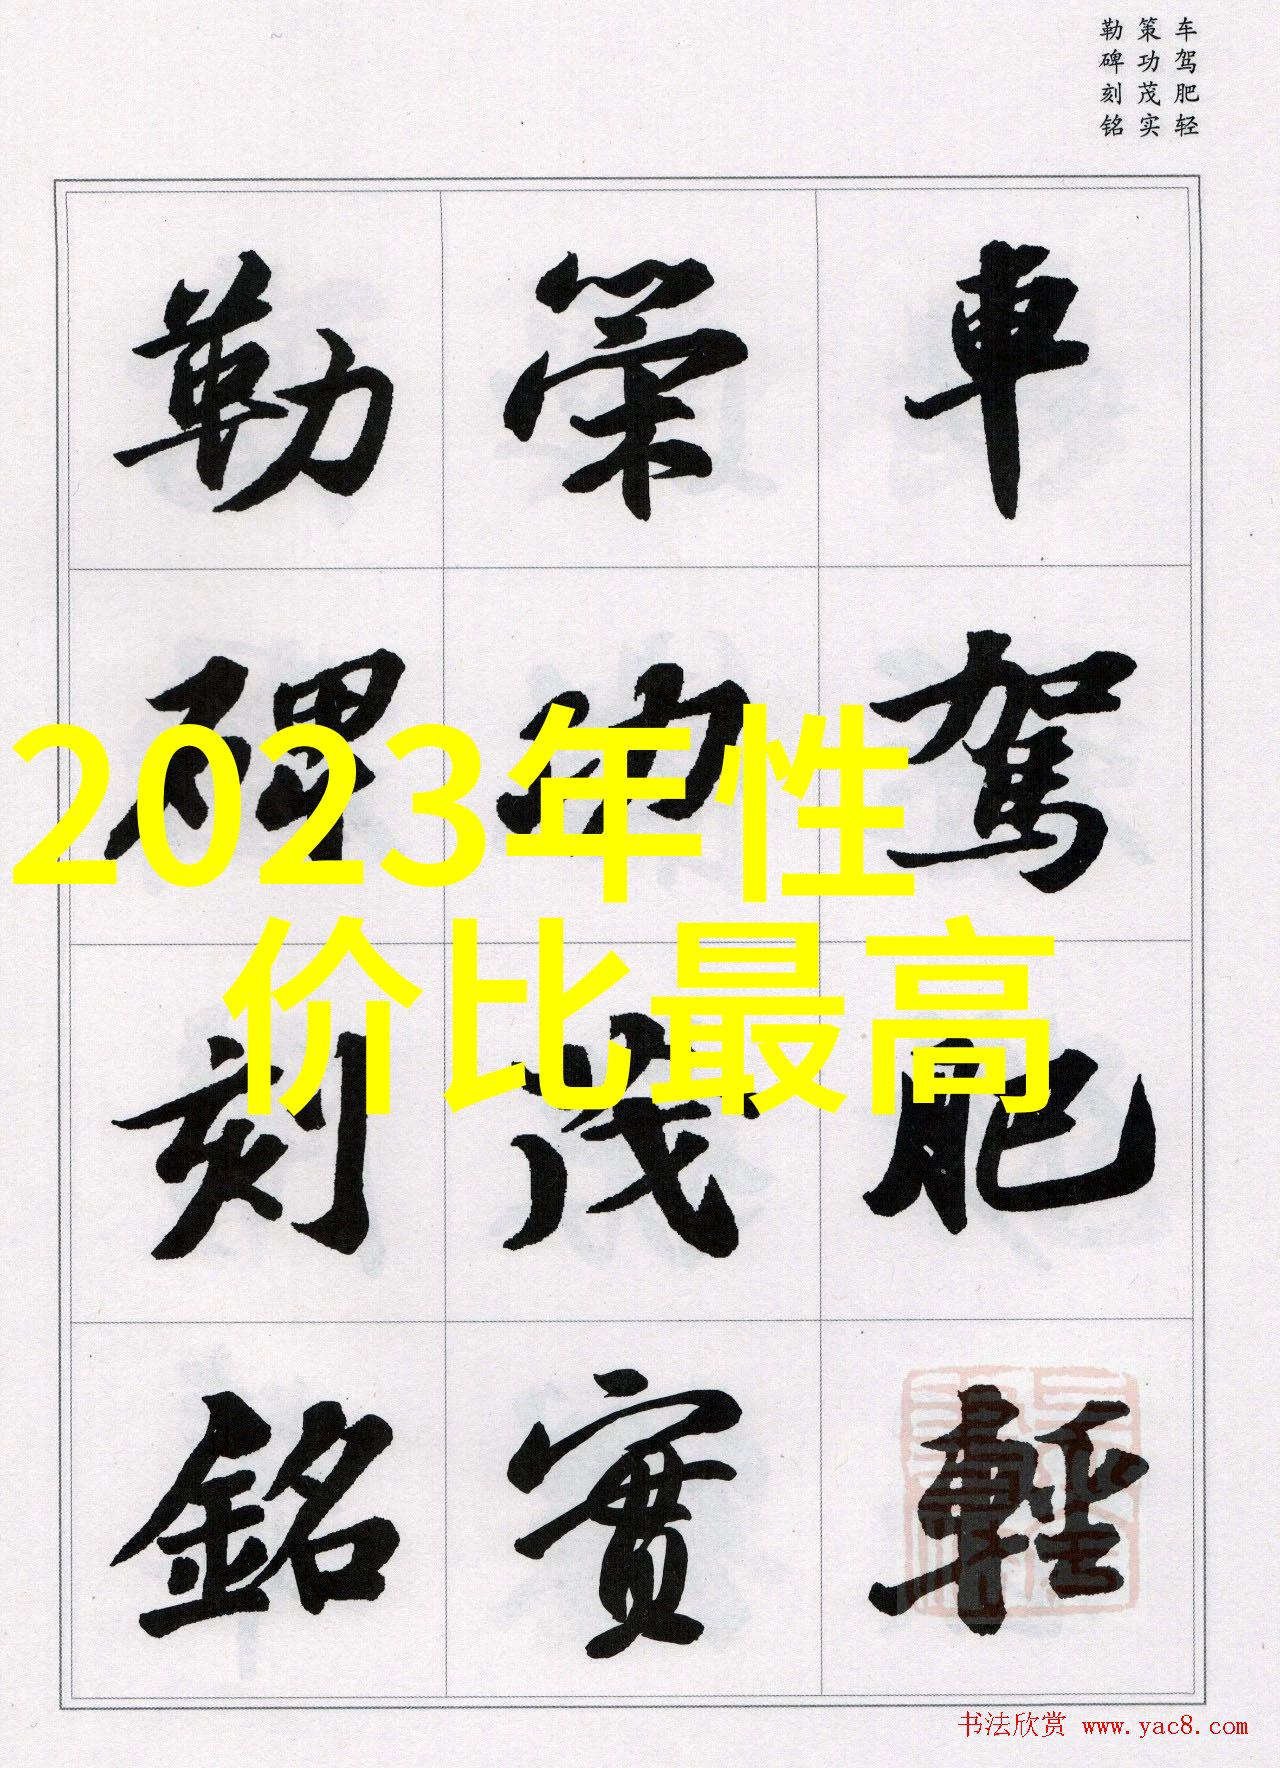 车驾肥轻
策功茂实
勒碑刻铭
車駕肥輕
策功茂實
勒碑刻銘
2023年性
价比最高
书法欣赏 www.yac8.com